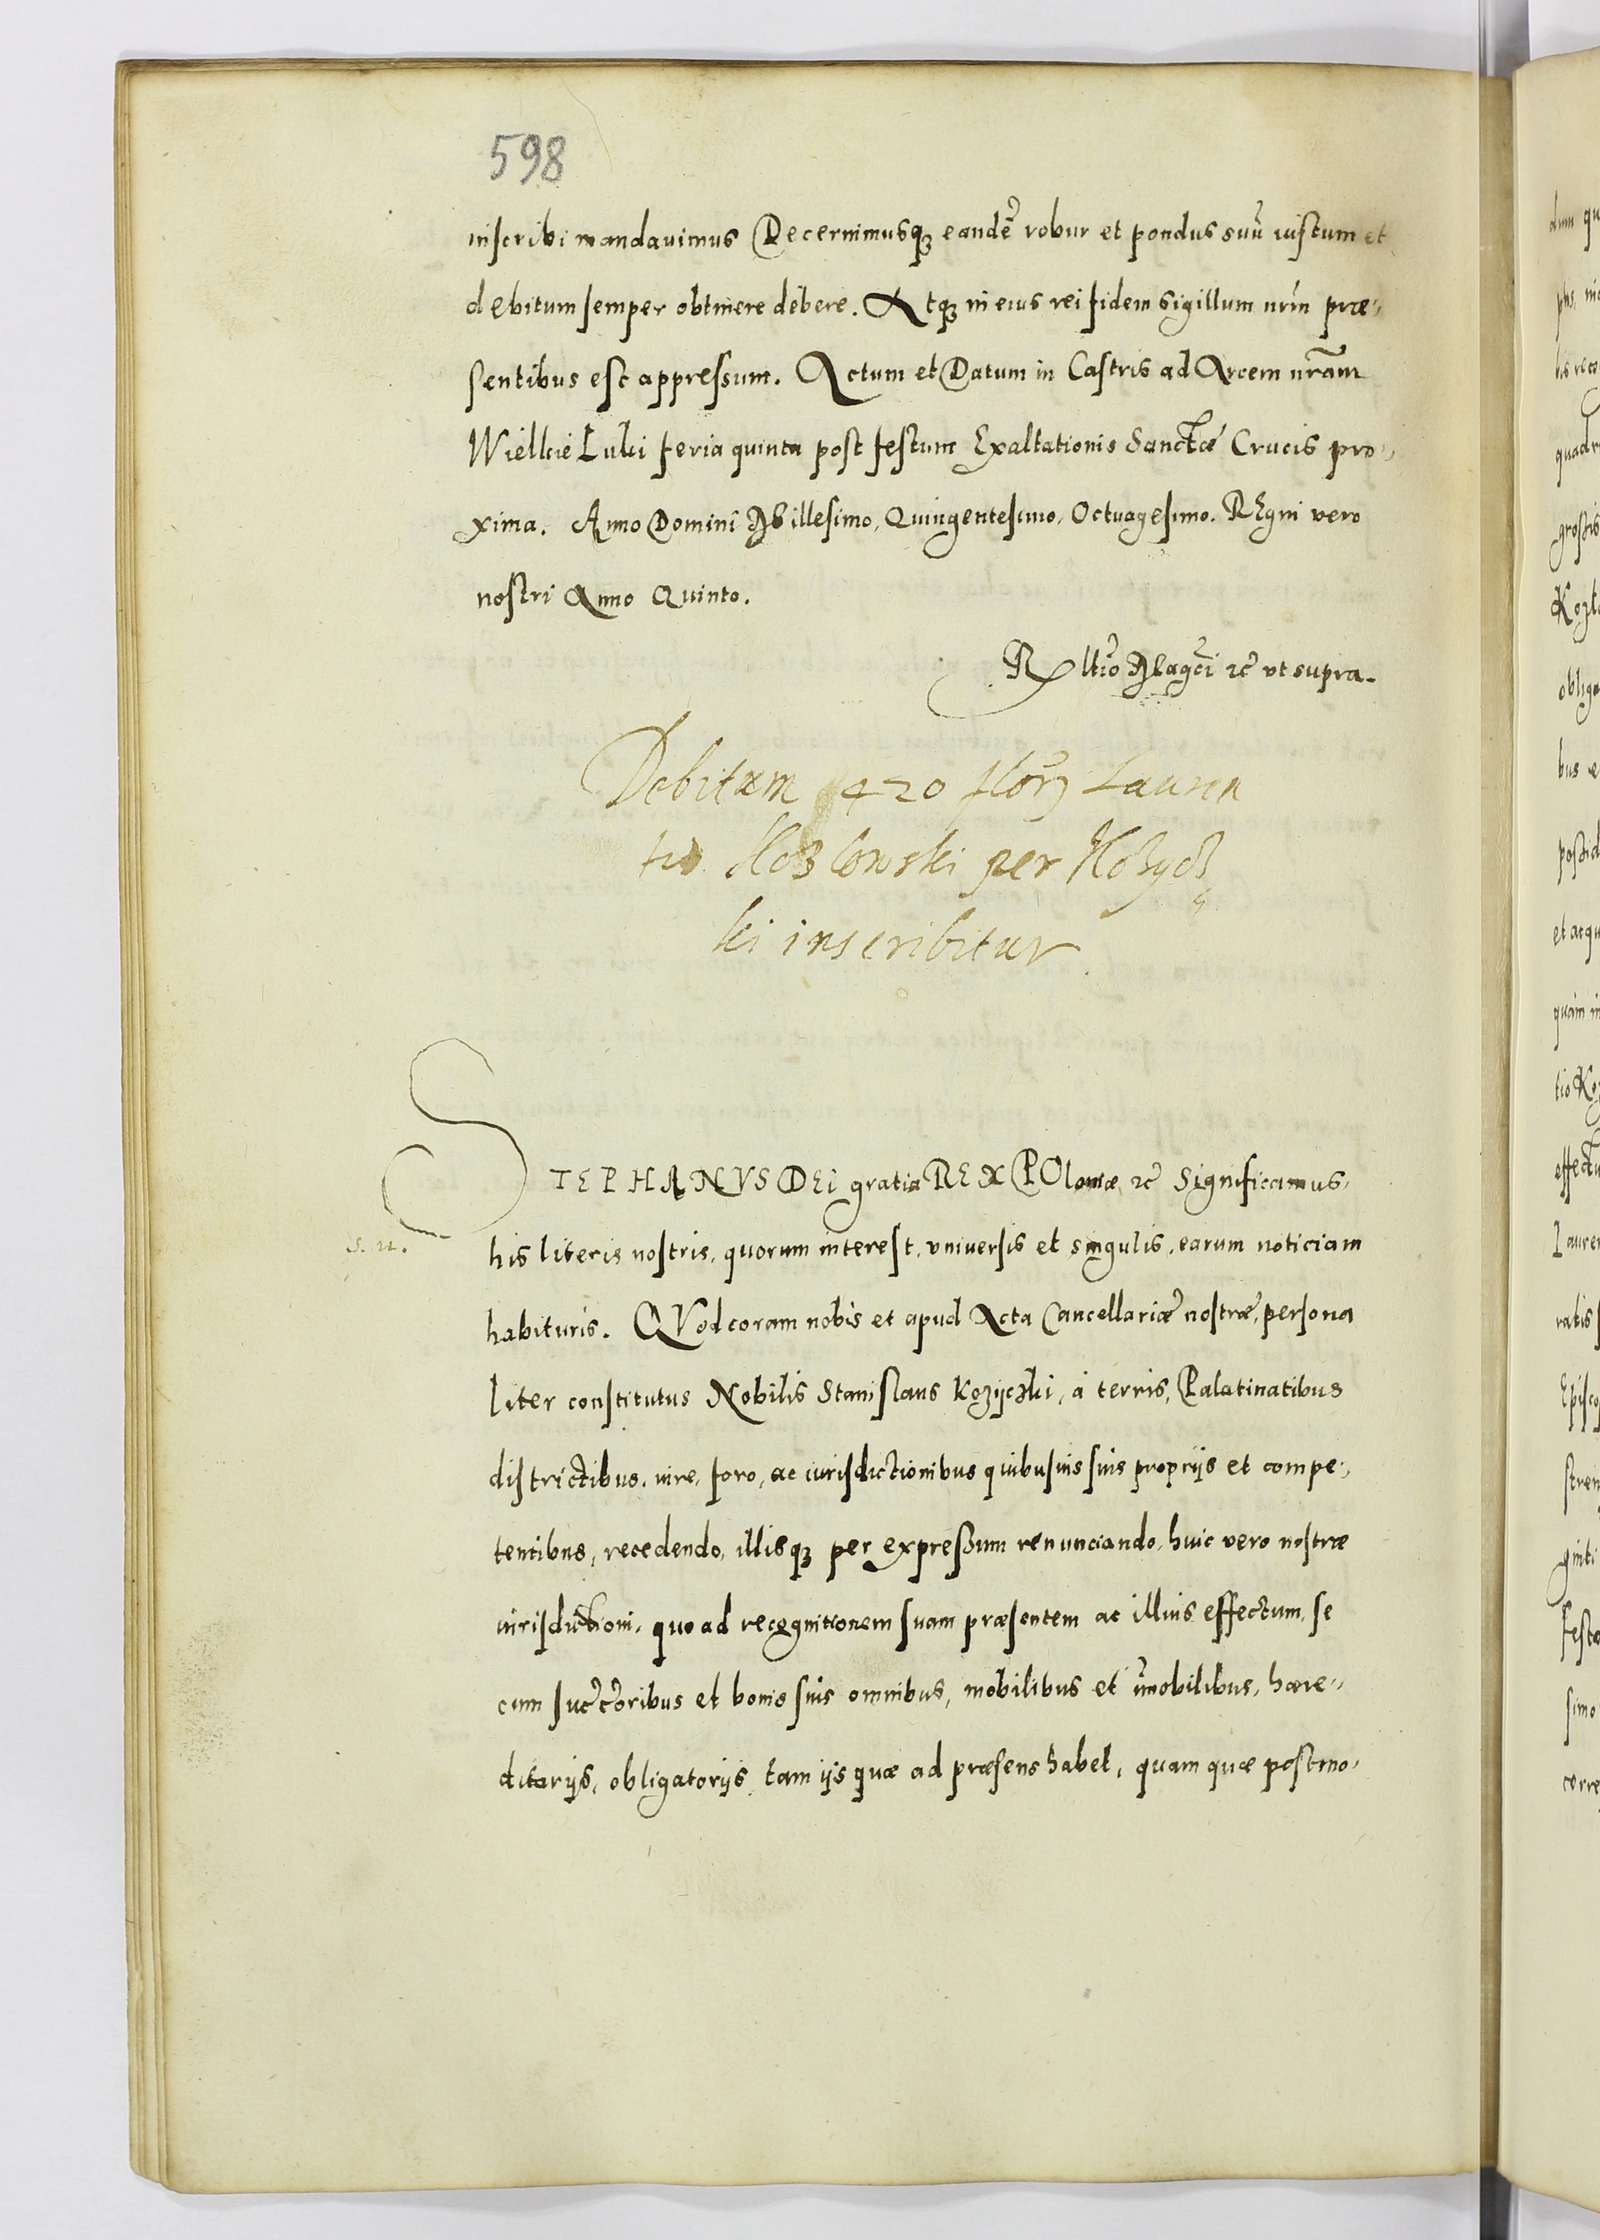 598
inscribi mandauimus Decernimusqꝫ eandē robur et pondus suū iustum et
debitum semper obtinere debere. Atqꝫ in eius rei fidem sigillum nr̄m præ-
sentibus est appressum. Actum et Datum in Castris ad Arcem nr̄am
Wielkie Luki feria quinta post festum Exaltationis Sanctæ Crucis pro-
xima. Anno Domini Millesimo, Quingentesimo, Octuagesimo. REgni vero
nostri Anno Quinto.
Rltio Magci ꝛc̄ vt supra.
Debitum 420 flor Lauren
tio Kozlowski per Kozycz
ki inscribitur
STEPHANVS DEi gratia REX POloniæ ꝛc̄ Significamus
his literis nostris, quorum interest, vniuersis et singulis, earum noticiam
s. n.
habituris. QVod coram nobis et apud Acta Cancellariæ nostræ, persona
liter constitutus Nobilis Stanislaus Kozyczki, à terris, Palatinatibus
districtibus, iure, foro, ac iurisdictionibus quibusuis suis proprijs et compe-
tentibus, recedendo, illisqꝫ per expressum renunciando, huic vero nostræ
iurisdictioni, quo ad recognitionem suam præsentem ac illius effectum, se
cum succ̄oribus et bonis suis omnibus, mobilibus et im̄obilibus, hære-
ditarijs, obligatorijs, tam ijs quæ ad præsens habet, quam quæ postmo-